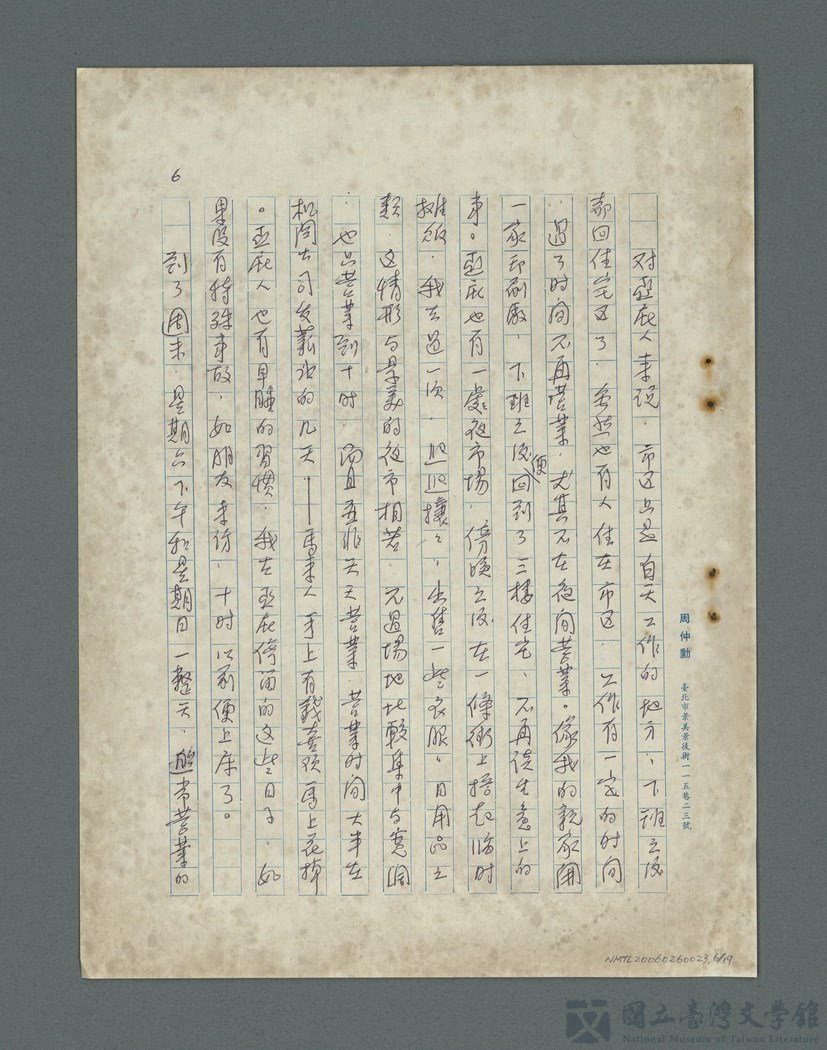 6
对亞庇人来说．市区只是白天工作的地方，下班之後
都回住宅区了．虽然也有人住在市区．工作有一定的时间
．過了时间不再营業．尤其不在夜间营業。像我的親家開
一家印刷廠．下班之後便回到了三楼住宅．不再談生意上的
事。亞庇也有一處夜市場．傍晚之後在一條街上搭起临时
攤販．我去過一次．熙熙攘々，出售一些衣服，日用品之
類．这情形与景美的夜市相若．不過場地比較集中与宽闊
．也只营業到十时．而且並非天天营業．营業时间大半在
机関公司发薪水的几天——馬来人手上有錢喜欢馬上花掉
。亞庇人也有早睡的習惯．我在亞庇停留的这些日子．如
果没有特殊事故．如朋友来访．十时以前便上床了。
到了周末．星期六下午和星期日一整天．照常营業的
周仲勳 臺北市景美景後街一一五巷二三號
NMTL20060260023, 6/19
國立臺灣文學館
National Museum of Taiwan Literature